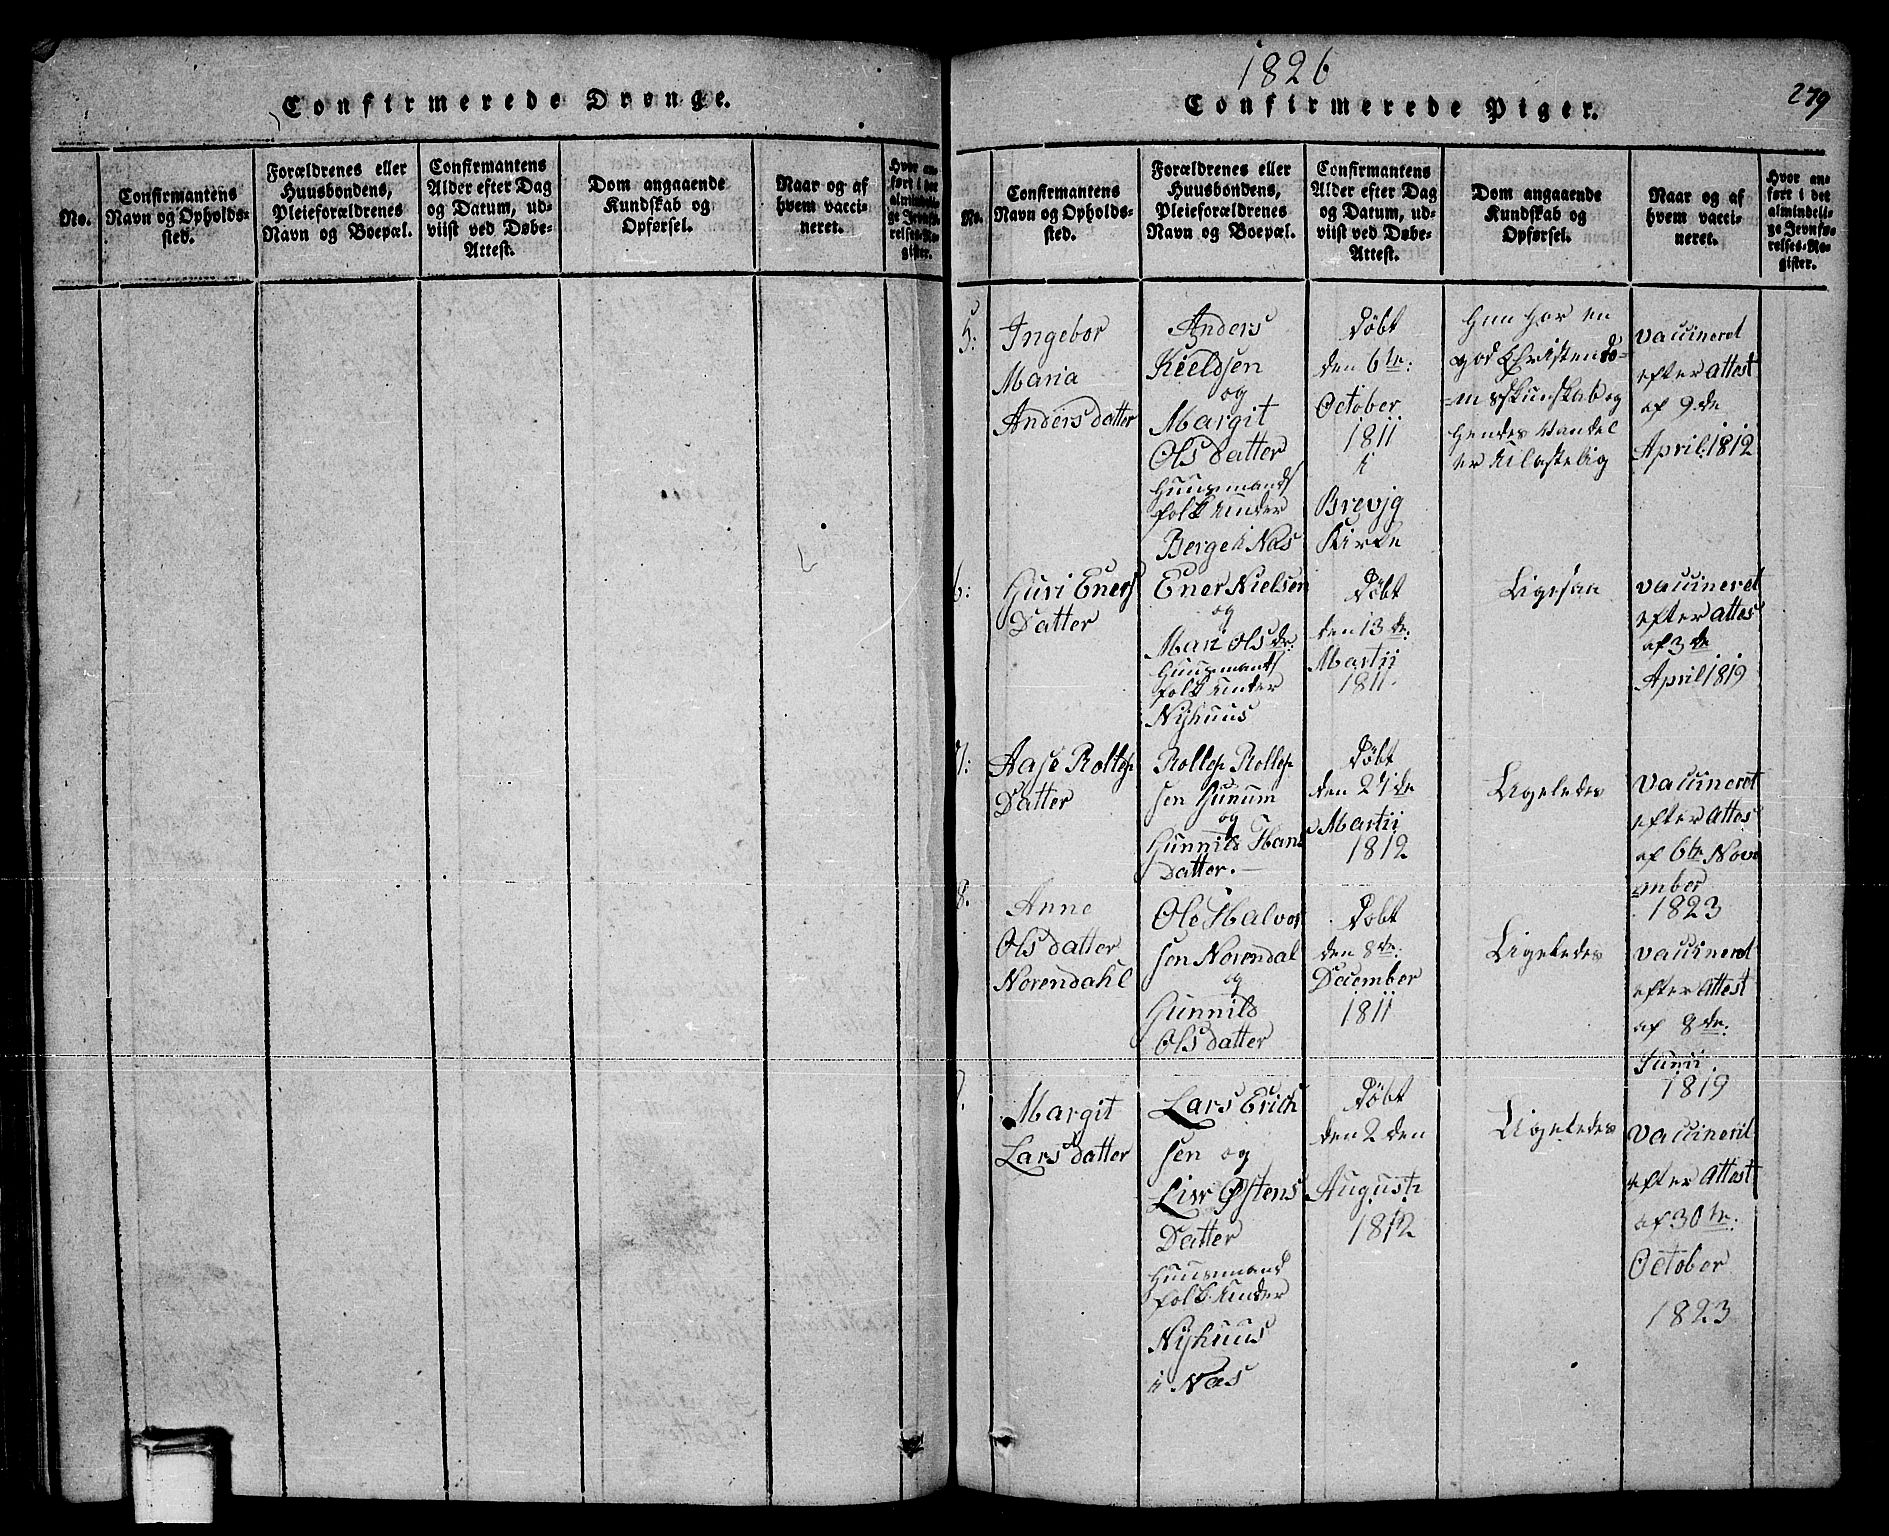 Confirmerede Drenge.
No.
Confirmantens
Navn og Opholds-
sted.
Forældrenes eller
Huusbondens,
Pleieforældrenes
Navn og Boepæl.
Confirmantens
Alder efter Dag
og Datum, ud-
viist ved Døbe-
Attest.
Dom angaaende
Kundskab og
Opførsel.
Naar og af
hvem vacci-
neret.
Hvor an-
ført i det
almindeli-
ge Jevnfø-
relses-Re-
gister.
1826
279
Confirmerede Piger.
No.
Confirmantens
Navn og Opholds-
sted.
Forældrenes eller
Huusbondens,
Pleieforældrenes
Navn og Boepæl.
Confirmantens
Alder efter Dag
og Datum, ud-
viist ved Døbe-
Attest.
Dom angaaende
Kundskab og
Opførsel.
Naar og af
hvem vacci-
neret.
Hvor an-
ført i det
almindeli-
ge Jevnfø-
relses-Re-
gister.
5:
Ingebor
Maria
Andersdatter
Anders
Kieldsen
og
Margit
Olsdatter
Huusmands
folk under
Berge i Næs
Døbt
den 6te:
October
1811
i
Brevig
Kirke
Hun har en
god Christendo-
-msskundskab og
hendes Vandel
er Ulastelig
vaccineret
efter attest
af 9de
April 1812
6:
Guri Eners
Datter
Ener Nielsen
og
Mari Olsdr:
Huusmands
folk under
Nyhuus
Døbt
den 13de:
Martii
1811.
Ligesaa
vaccineret
efter attes
af 3de
April 1819
7:
Aase Rollef
Datter
Rollef Rollef
sen
og
Gunnild Hans
Datter.
Døbt
den 24de
Martii
1812
Ligeledes
vaccineret
efter attes
af 6te Nove
mber
1823
8.
Anne
Olsdatter
Norendahl
Ole Halvor
sen Norendal
og
Gunnild
Olsdatter
Døbt
den 8de:
December
1811
Ligeledes
vaccineret
efter attest
af 8de:
Junii.
1819
9.
Margit
Larsdatter
Lars Erich
sen og
Liv Østens
Datter
Huusmand
folk under
Nyhuus
i Næs
Døbt
den 2den
Augusti
1812
Ligeledes
vaccineril
efter attest
af 30te:
October
1823